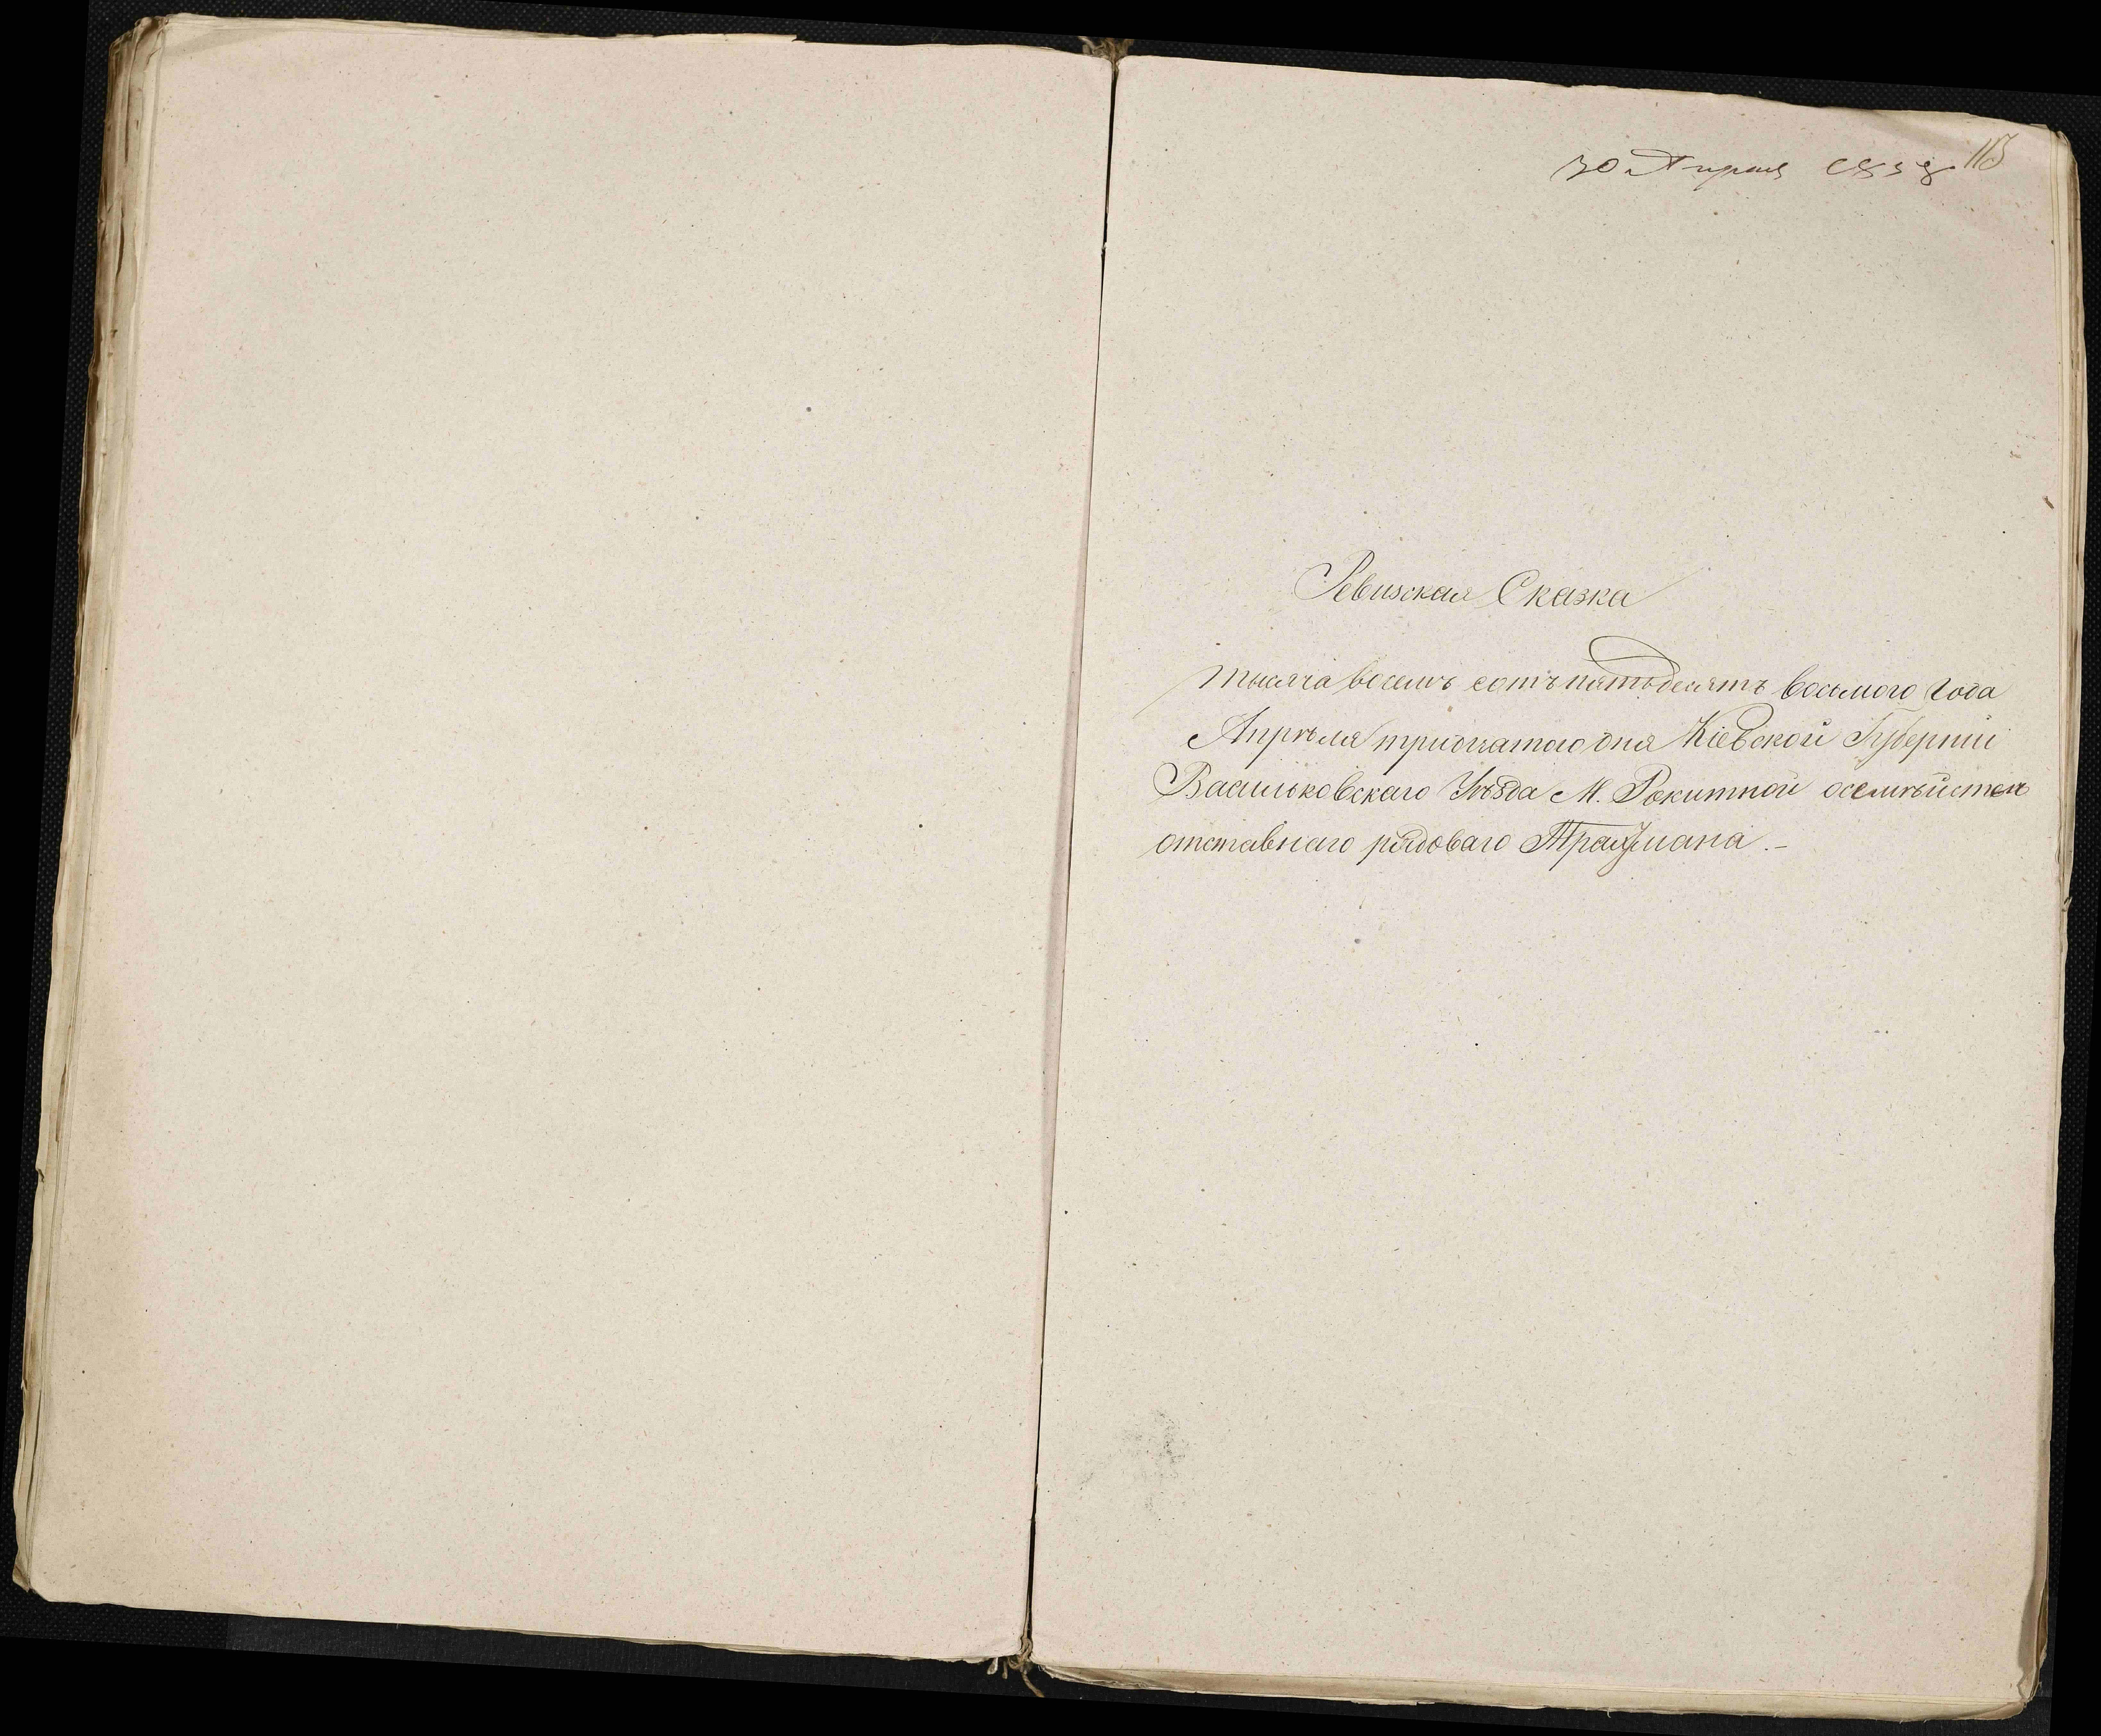 30 Апреля 1858 115
Ревизская Сказка
тысяча восемь сотъ пятьдесятъ восьмого года
Апрѣля тридцатого дня Кіевской Губерніи
Васильковскаго Уѣзда М. Рокитной о семѣйствѣ
отставнаго рядоваго